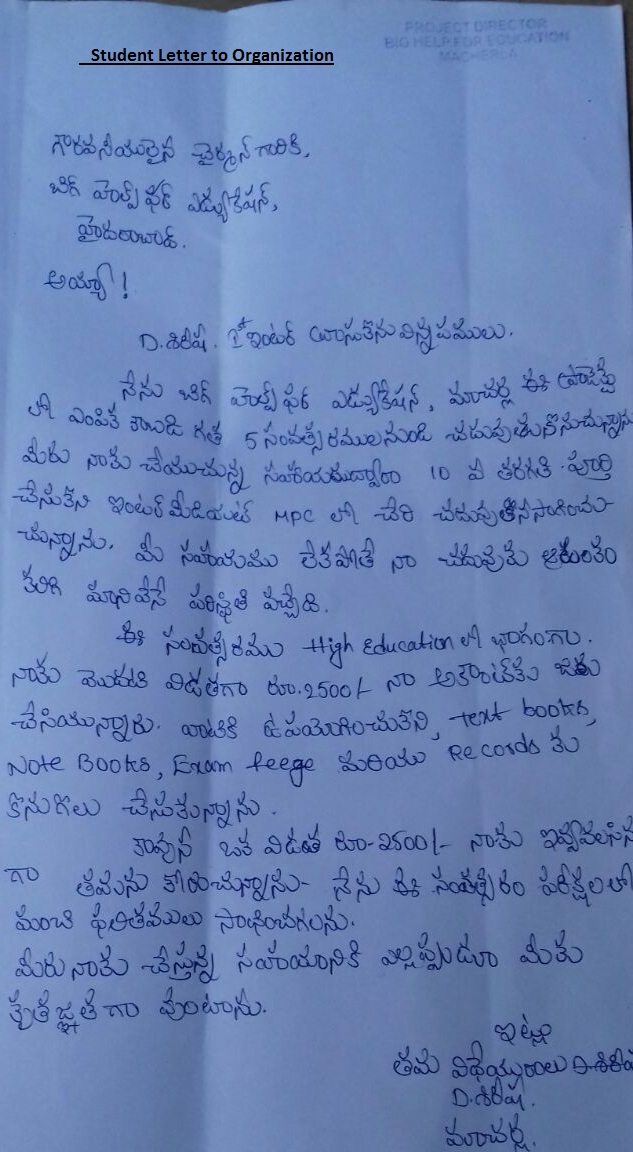 PROJECT DIRECTOR
BIG HELP FOR EDUCATION
MACHERLA
Student Letter to Organization
గౌరవనీయులైన చైర్మన్ గారికి,
బిగ్ హెల్ప్ ఫర్ ఎడ్యుకేషన్,
హైదరాబాద్.
అయ్యా!
D.శిరీష. 1st ఇంటర్ వ్రాసుకొను విన్నపములు.
నేను బిగ్ హెల్ప్ ఫర్ ఎడ్యుకేషన్, మాచర్ల ఈ
లో ఎంపిక కాబడి గత 5 సంవత్సరములనుండి చదువుకుకొనుచున్నాను
మీరు నాకు చేయుచున్న సహాయముద్వారా 10 వ తరగతి పూర్తి
చేసుకొని ఇంటర్ మీడియట్ MPC లో చేరి చదువుకొనసాగించు-
చున్నాను. మీ సహాయము లేకపోతే నా చదువుకు ఆటంకం
కలిగి మానివేసే పరిస్థితి వచ్చేది.
ఈ సంవత్సరము High Education లో భాగంగా.
నాకు మొదటి విడతగా రూ.2500/- నా అకౌంట్‌కు జమ
చేసియున్నారు. వాటికి ఉపయోగించుకొని, text books,
Note Books, Exam feege మరియు Records కు
కొనుగోలు చేసుకున్నాను.
కావున ఒక విడత రూ-2500/- నాకు ఇవ్వవలసిన
గా తమను కోరుచున్నాను- నేను ఈ సంవత్సరం పరీక్షలలో
మంచి ఫలితములు సాధించగలను.
మీరు నాకు చేస్తున్న సహాయానికి ఎల్లప్పుడూ మీకు
కృతజ్ఞతగా వుంటాను.
ఇట్లు
తమ విధేయురాలు D.శిరీష
D.శిరీష.
మాచర్ల.